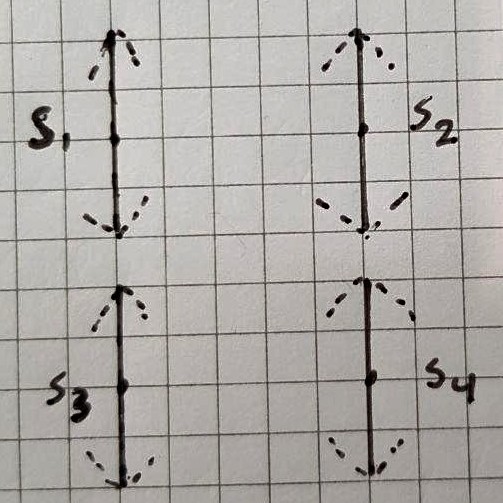 S1 S2
S3 S4